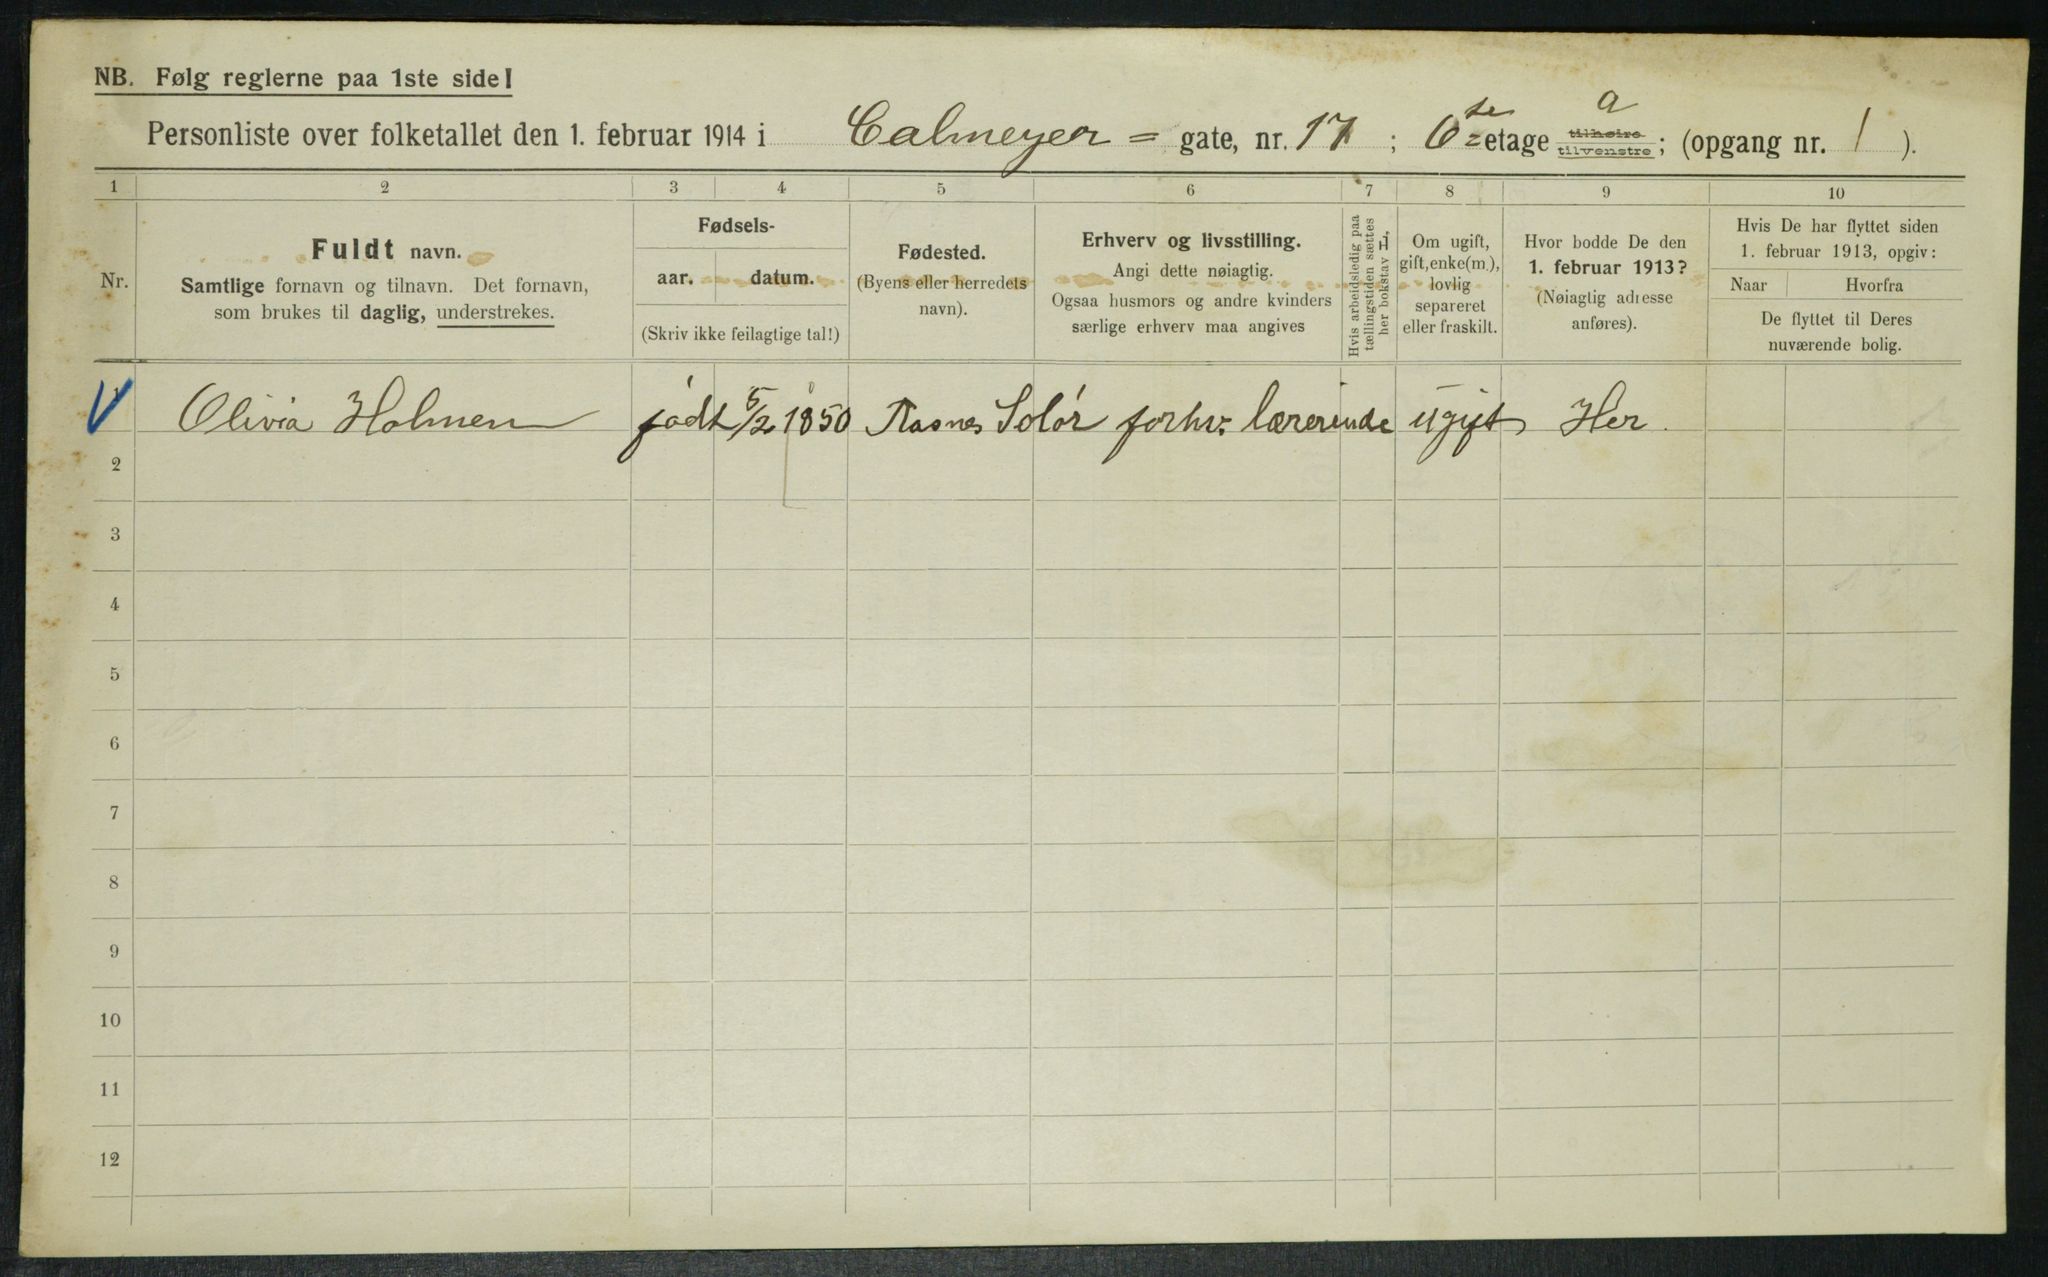 NB. Følg reglerne paa 1ste side!
Personliste over folketallet den 1. februar 1914 i Calmeyer = gate, nr. 17 ; 6te etage tilhøire tilvenstre a ; (opgang nr. 1 ).
1 2 3 4 5 6 7 8 9 10
Nr.
Fuldt navn.
Samtlige fornavn og tilnavn. Det fornavn,
som brukes til daglig, understrekes.
Fødsels-
aar. datum.
(Skriv ikke feilagtige tal!)
Fødested.
(Byens eller herredets
navn).
Erhverv og livsstilling.
Angi dette nøiagtig.
Ogsaa husmors og andre kvinders
særlige erhverv maa angives
Hvis arbeidsledig paa
tællingstiden sættes
her bokstav L.
Om ugift,
gift, enke(m.),
lovlig
separeret
eller fraskilt.
Hvor bodde De den
1. februar 1913?
(Nøiagtig adresse
anføres).
Hvis De har flyttet siden
1. februar 1913, opgiv:
Naar Hvorfra
De flyttet til Deres
nuværende bolig.
Olivia Holmen født 5/2 1850 Aasnes Solør forhv. lærerinde ugift Her.
2
3
4
5
6
7
8
9
10
11
12